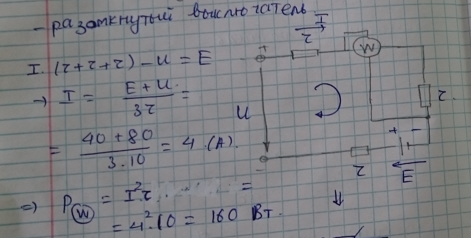 - разомкнутый выключатель.
I. (r+r+r) - U = E
→ I = E + U / 3r =
= 40 + 80 / 3.10 = 4 (A).
⇒ P W = I²r =
= 4².10 = 160 Вт.
I
r
W
+
U
-
r
+ -
r
E
⇓